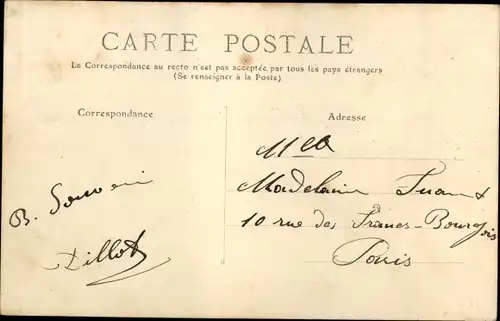 CARTE POSTALE
La Correspondance au recto n'est pas acceptée par tous les pays étrangers
(Se renseigner à la Poste)
Correspondance
Adresse
B. Souveni
Dillot
Mlle
Madelaine
10 rue des Francs-Bourgois
Paris